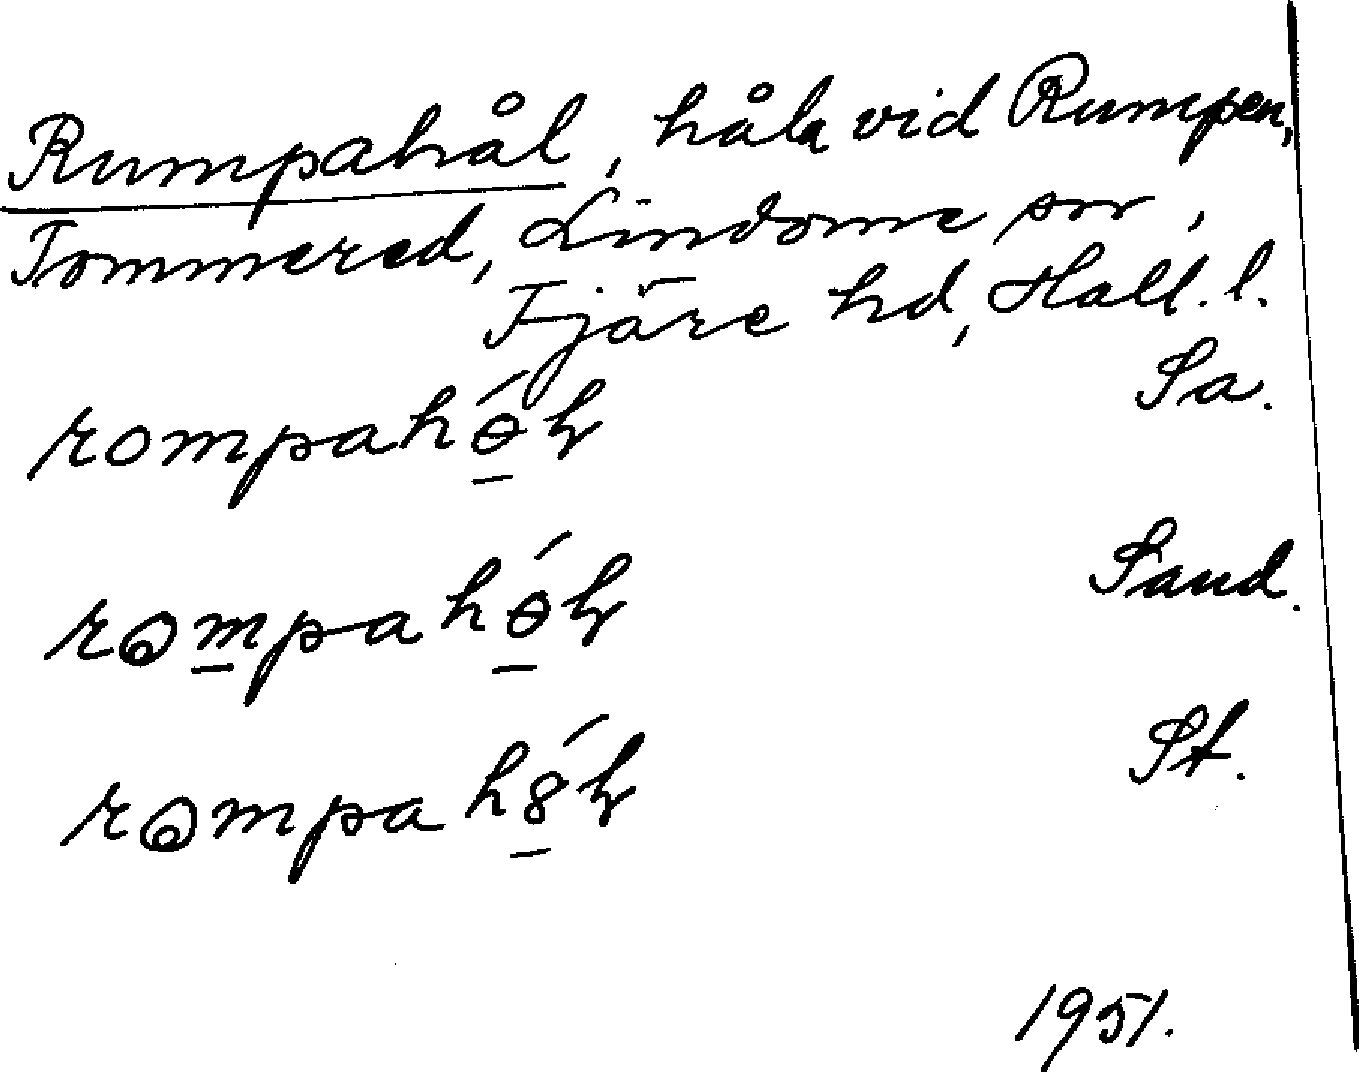 Rumpahål, håla vid Rumpen,
Tommered, Lindome sn,
Fjäre hd, Hall. l.
Sa.
Sand.
St.
1951.